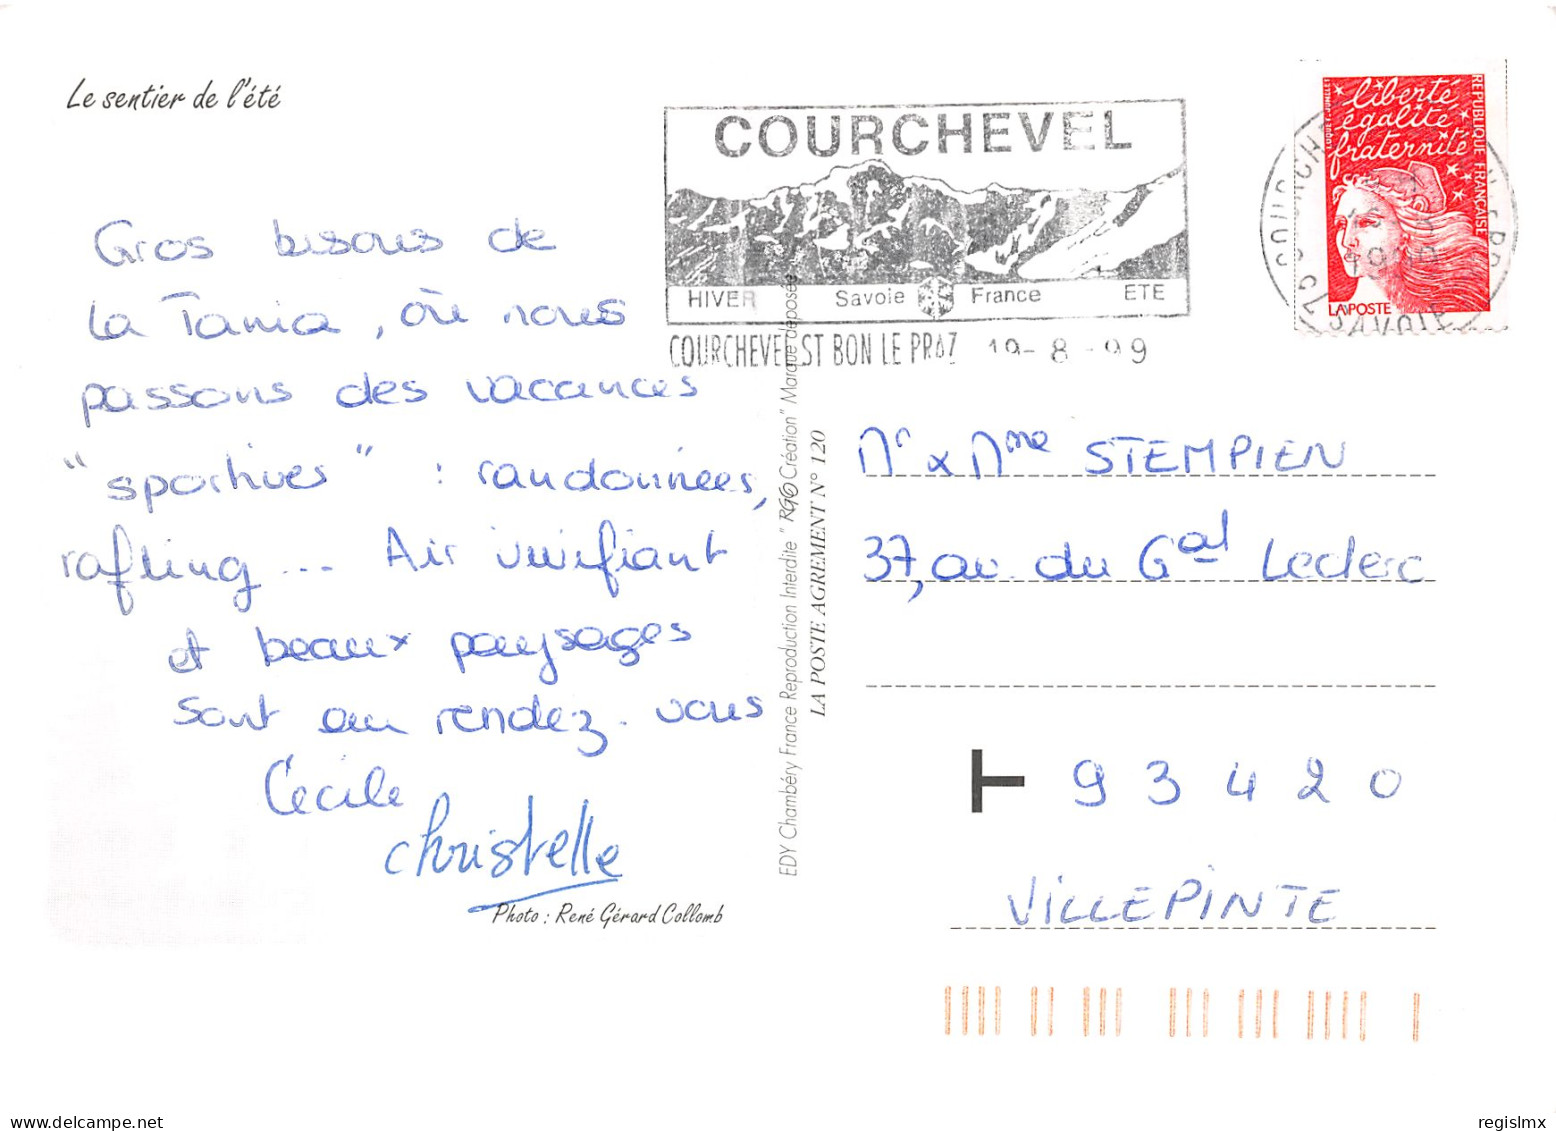 Le sentier de l'été
COURCHEVEL
HIVER Savoie France ETE
COURCHEVEL ST BON LE PRAZ 19-8-99
liberté
égalité
fraternité
REPUBLIQUE FRANÇAISE
LA POSTE
SAVOIE
Gros bisous de
La Tania, où nous
passons des vacances
"sportives" : randonnées,
rafting... Air vivifiant
et beaux paysages
sont au rendez-vous
Cécile
christelle
Photo : René Gérard Collomb
EDY Chambéry France Reproduction Interdite " RGC Création" Marque déposée
LA POSTE AGREMENT N° 120
Mr x Mme STEMPIEN
37, av. du Gal Leclerc
T 93420
VILLEPINTE
regislmx